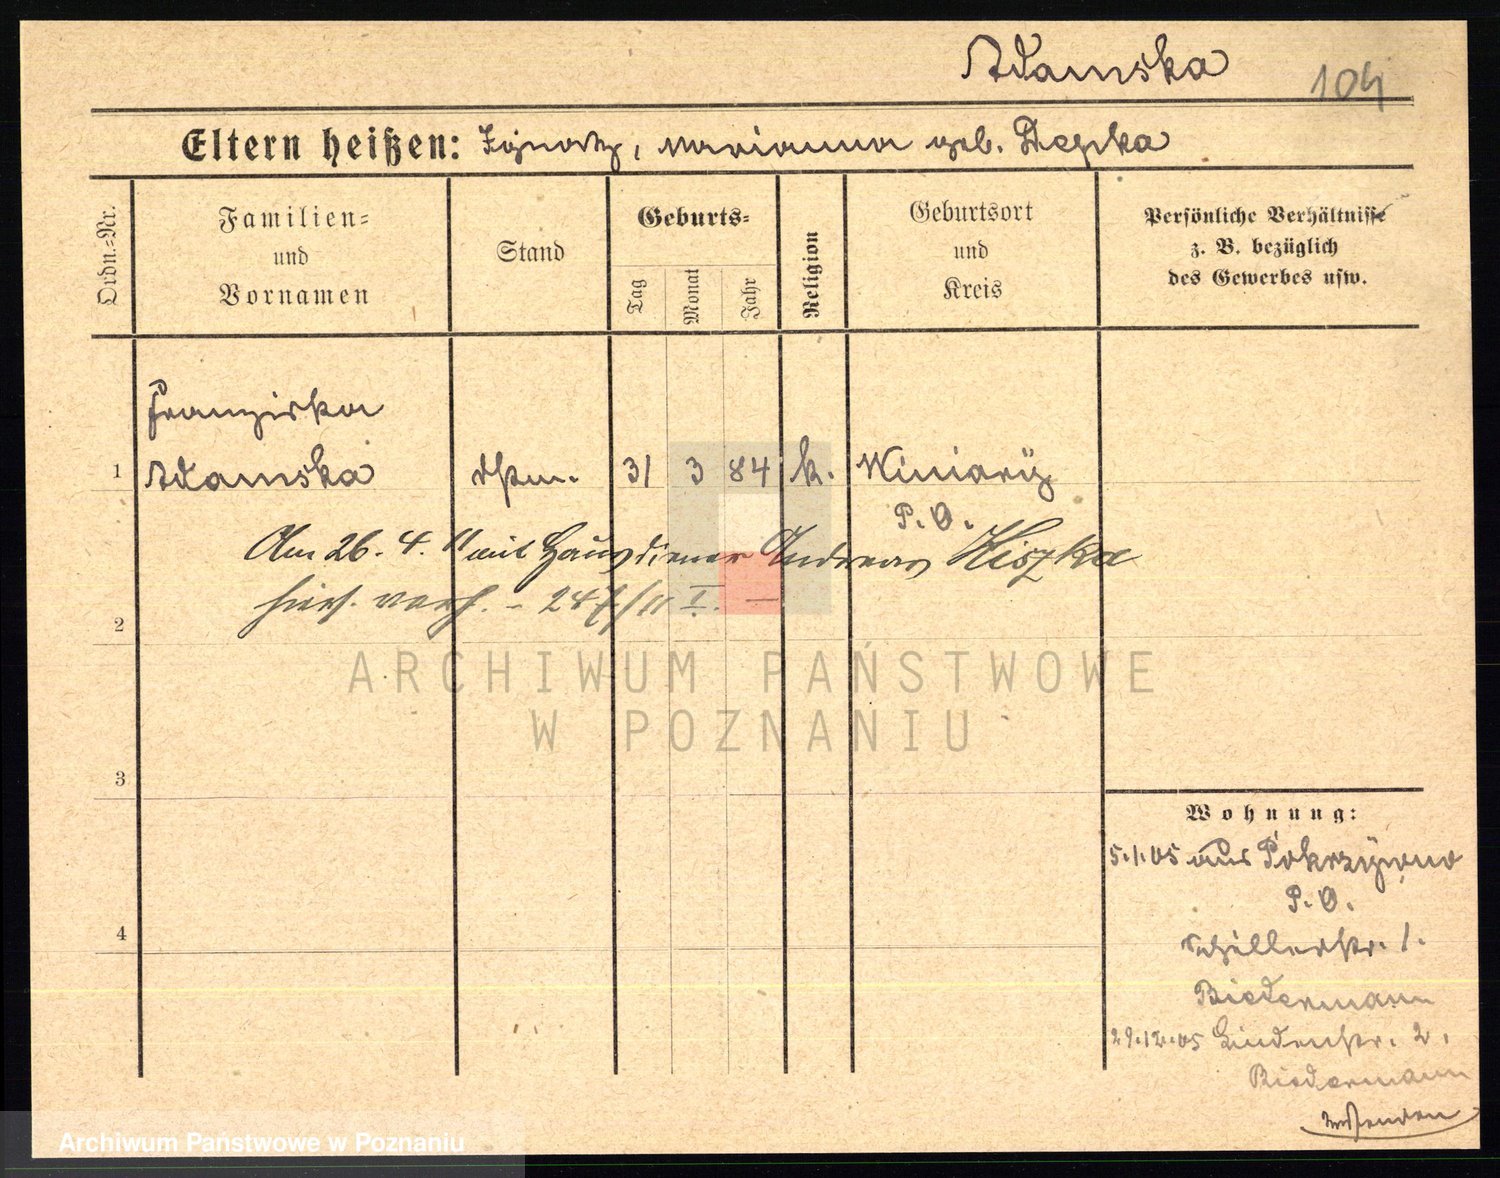 Adamska 104
Eltern heißen: Ignatz, Marianna geb. Depka
Ordn.-Nr.
Familien-
und
Vornamen
Stand
Geburts-
Tag
Monat
Jahr
Religion
Geburtsort
und
Kreis
Persönliche Verhältnisse
z. B. bezüglich
des Gewerbes usw.
Franziska
1 Adamska 31 3 84 k. Winiary
P. O.
Am 26. 4. 11 mit Hausdiener Andreas Kiszka
hier verh. - 247/11 I. —
2
3
4
Wohnung:
5.1.05 aus Pokrzywno
P. O.
Schillerstr. 1.
Biedermann
29.12.05 Lindenstr. 2.
Biedermann
ARCHIWUM PAŃSTWOWE
W POZNANIU
Archiwum Państwowe w Poznaniu